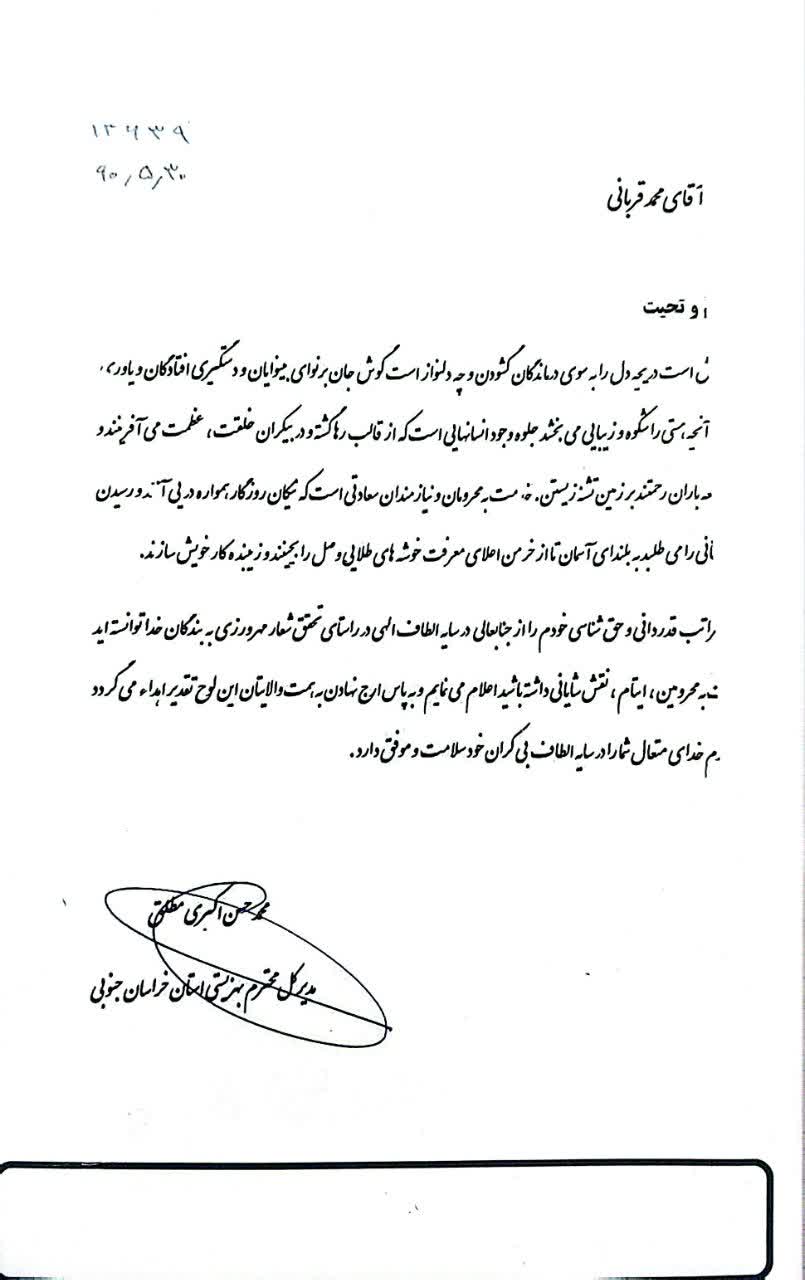 ۱۳۶۳۹
۹۰٫۵٫۳۰
آقای محمد قربانی
و تحیت
است دریچه دل را به سوی درماندگان گشودن و چه دلنواز است گوش جان بر نوای بینوایان و دستگیری افتادگان و یاوری
آنچه هستی را شکوه و زیبایی می بخشد جلوه وجود انسانهایی است که از قالب رها گشته و در بیکران خلقت، عظمت می آفرینند و
باران رحمتند بر زمین تشنه زیستن. خدمت به محرومان و نیازمندان سعادتی است که نیکان روزگار همواره در پی آنند و رسیدن
را می طلبد به بلندای آسمان تا از خرمن اعلای معرفت خوشه های طلایی وصل را بچینند و زیبنده کار خویش سازند.
راتب قدردانی و حق شناسی خودم را از جنابعالی در سایه الطاف الهی در راستای تحقق شعار مهرورزی به بندگان خدا توانسته اید
به محرومین، ایتام، نقش شایانی داشته باشید اعلام می نمایم و به پاس ارج نهادن به همت والایتان این لوح تقدیر اهداء می گردد
خدای متعال شما را در سایه الطاف بی کران خود سلامت و موفق دارد.
محمد حسن اکبری مطلق
مدیر کل محترم بهزیستی استان خراسان جنوبی